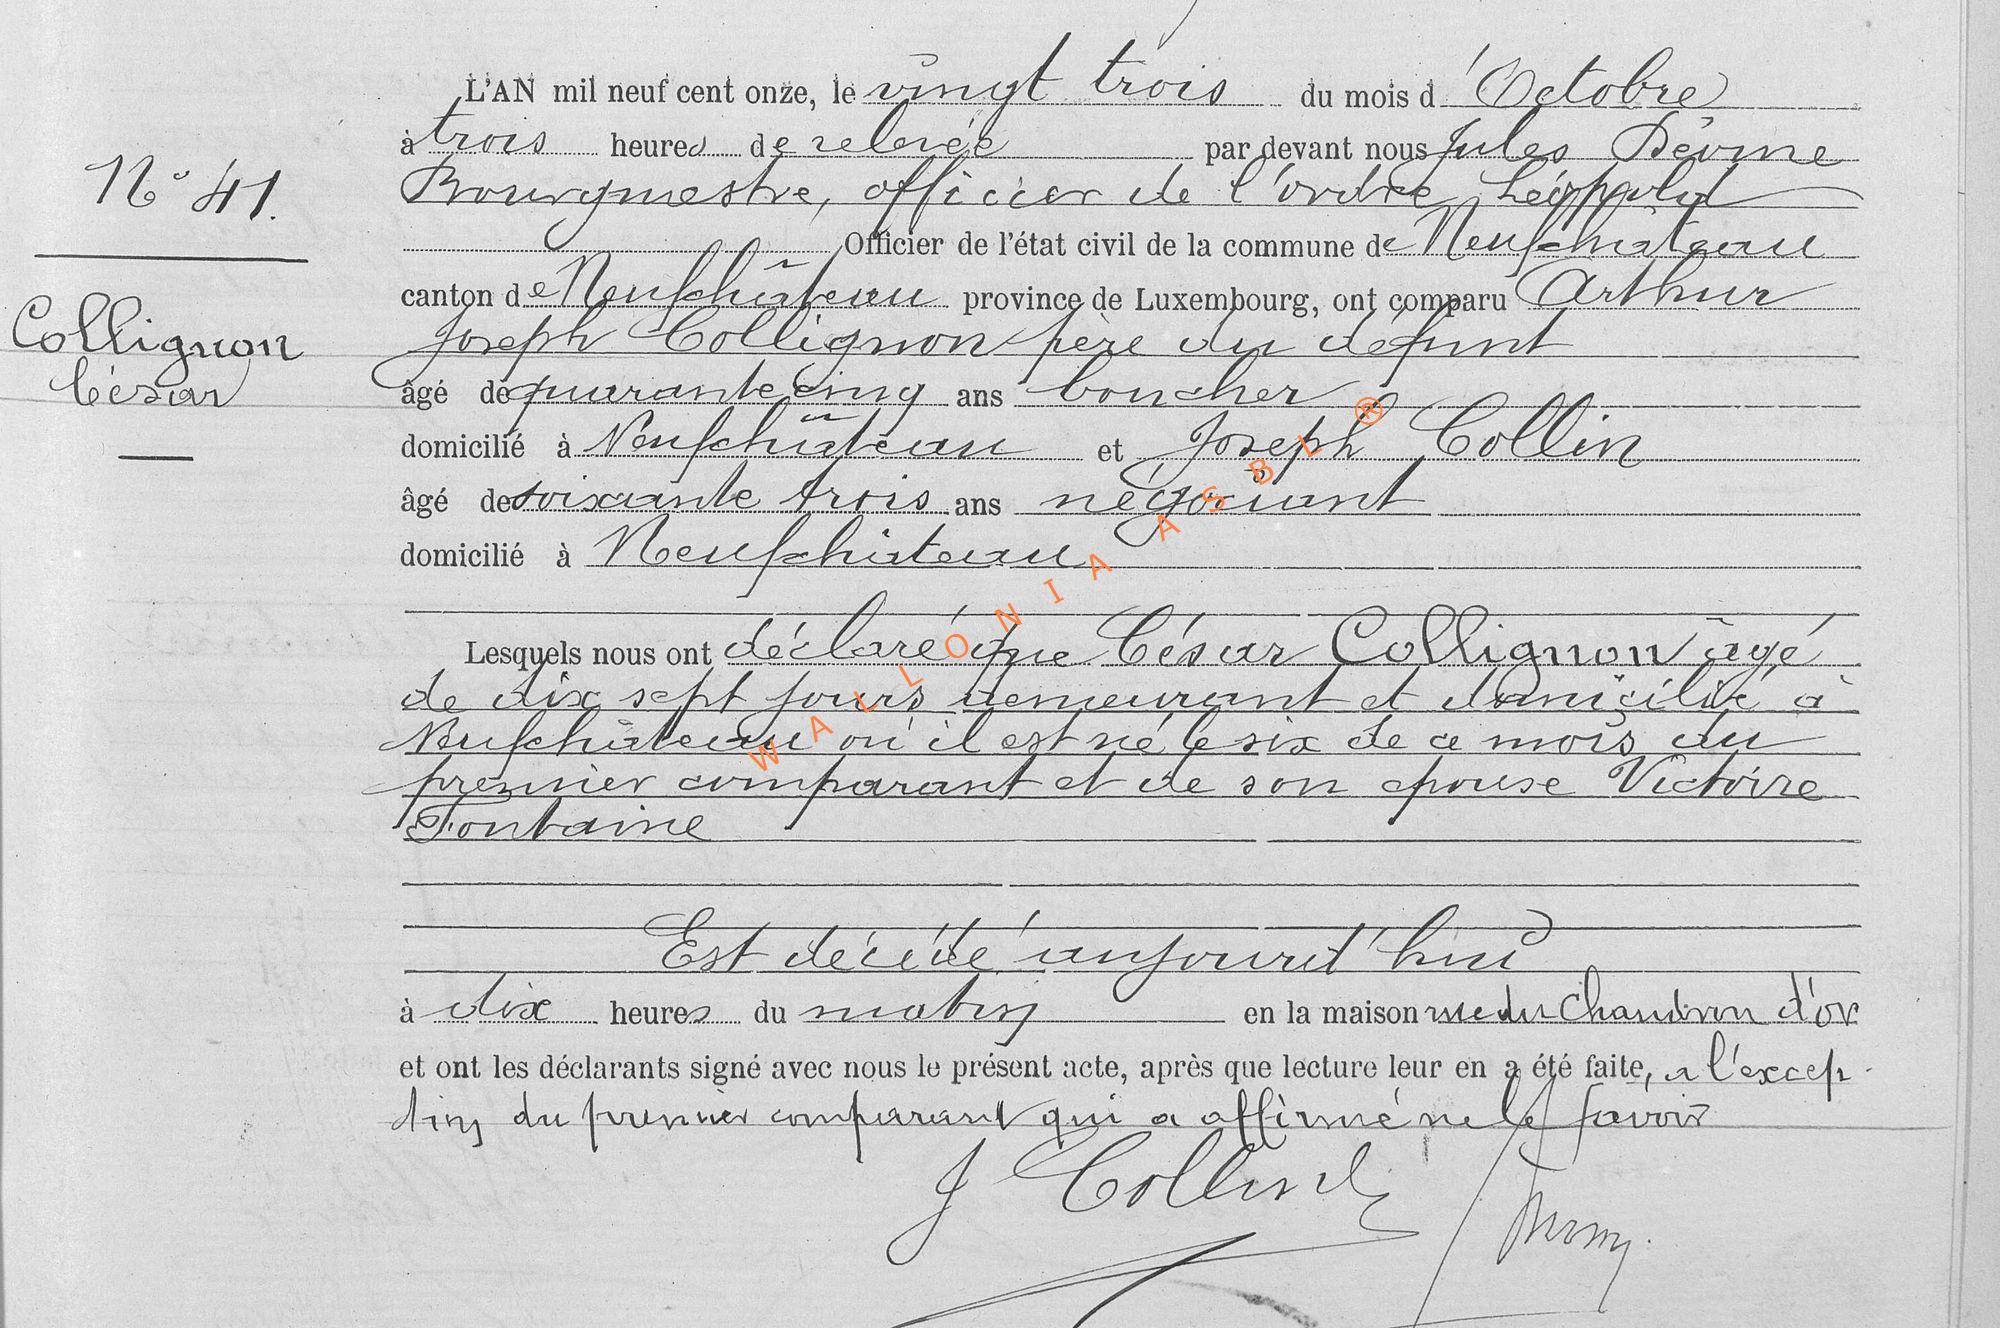 L'AN mil neuf cent onze, le vingt trois du mois d'Octobre
à trois heures de relevée par devant nous Jules
Bourgmestre, officier de l'ordre Léopold
N° 41.
Officier de l'état civil de la commune de Neufchâteau
canton de Neufchâteau province de Luxembourg, ont comparu Arthur
Joseph Collignon père du défunt
Collignon
César
âgé de quarante cinq ans boucher
domicilié à Neufchâteau et Joseph Collin
âgé de soixante trois ans négociant
domicilié à Neufchâteau
WALLONIA ASBL ®
Lesquels nous ont déclaré que César Collignon âgé
de dix sept jours demeurant et domicilié à
Neufchâteau où il est né le six de ce mois du
premier comparant et de son épouse Victoire
Fontaine
Est décédé aujourd'hui
à dix heures du matin en la maison rue du Chaudron d'or
et ont les déclarants signé avec nous le présent acte, après que lecture leur en a été faite, a l'excep-
tion du premier comparant qui a affirmé ne le savoir
J Collin